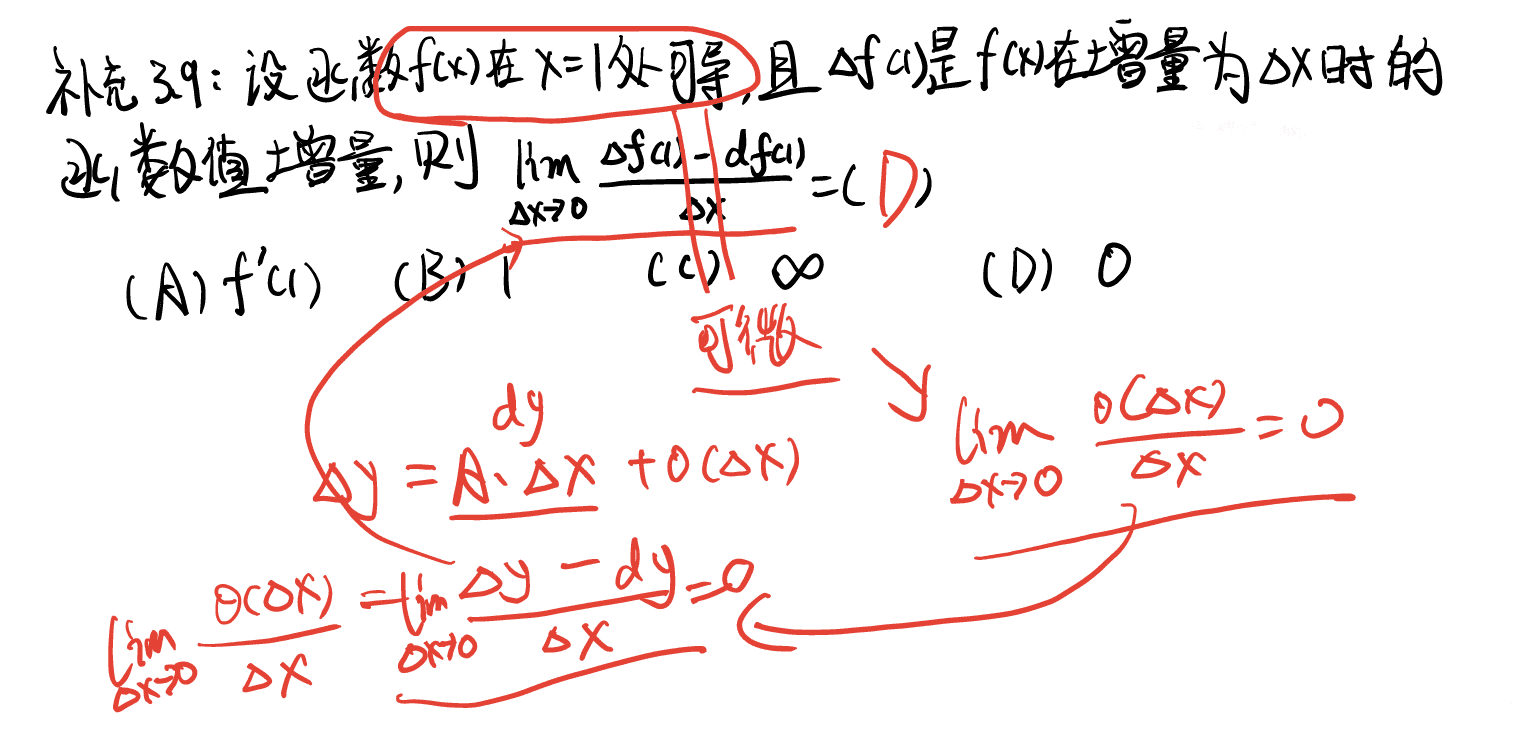 补充3.9:设函数f(x)在x=1处可导,且 Δf(1)是f(x)在增量为Δx时的
函数值增量,则 lim Δx→0 (Δf(1) - df(1))/Δx =(D)
(A) f'(1) (B) 1 (C) ∞ (D) 0
可微
dy
Δy = A·Δx + o(Δx)
lim Δx→0 o(Δx)/Δx = 0
lim Δx→0 o(Δx)/Δx = lim Δx→0 (Δy - dy)/Δx = 0